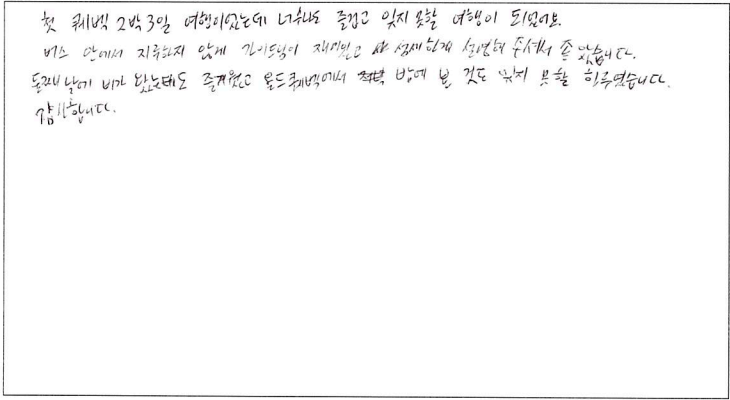 첫 퀘벡 2박3일 여행이었는데 너무나도 즐겁고 잊지못할 여행이 되었어요.
버스 안에서 지루하지 않게 가이드님이 재미있고 섬세하게 설명해 주셔서 좋았습니다.
둘째날에 비가 왔는데도 즐거웠고 올드퀘벡에서 밤에 본 것도 잊지 못할 하루였습니다.
감사합니다.